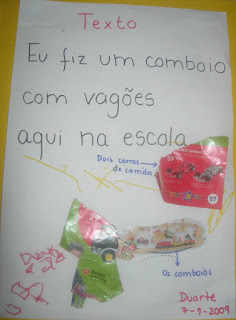 Texto
Eu fiz um comboio
com vagões
aqui na escola
Dois carros
de corrida
Os comboios
Duarte
7-9-2009